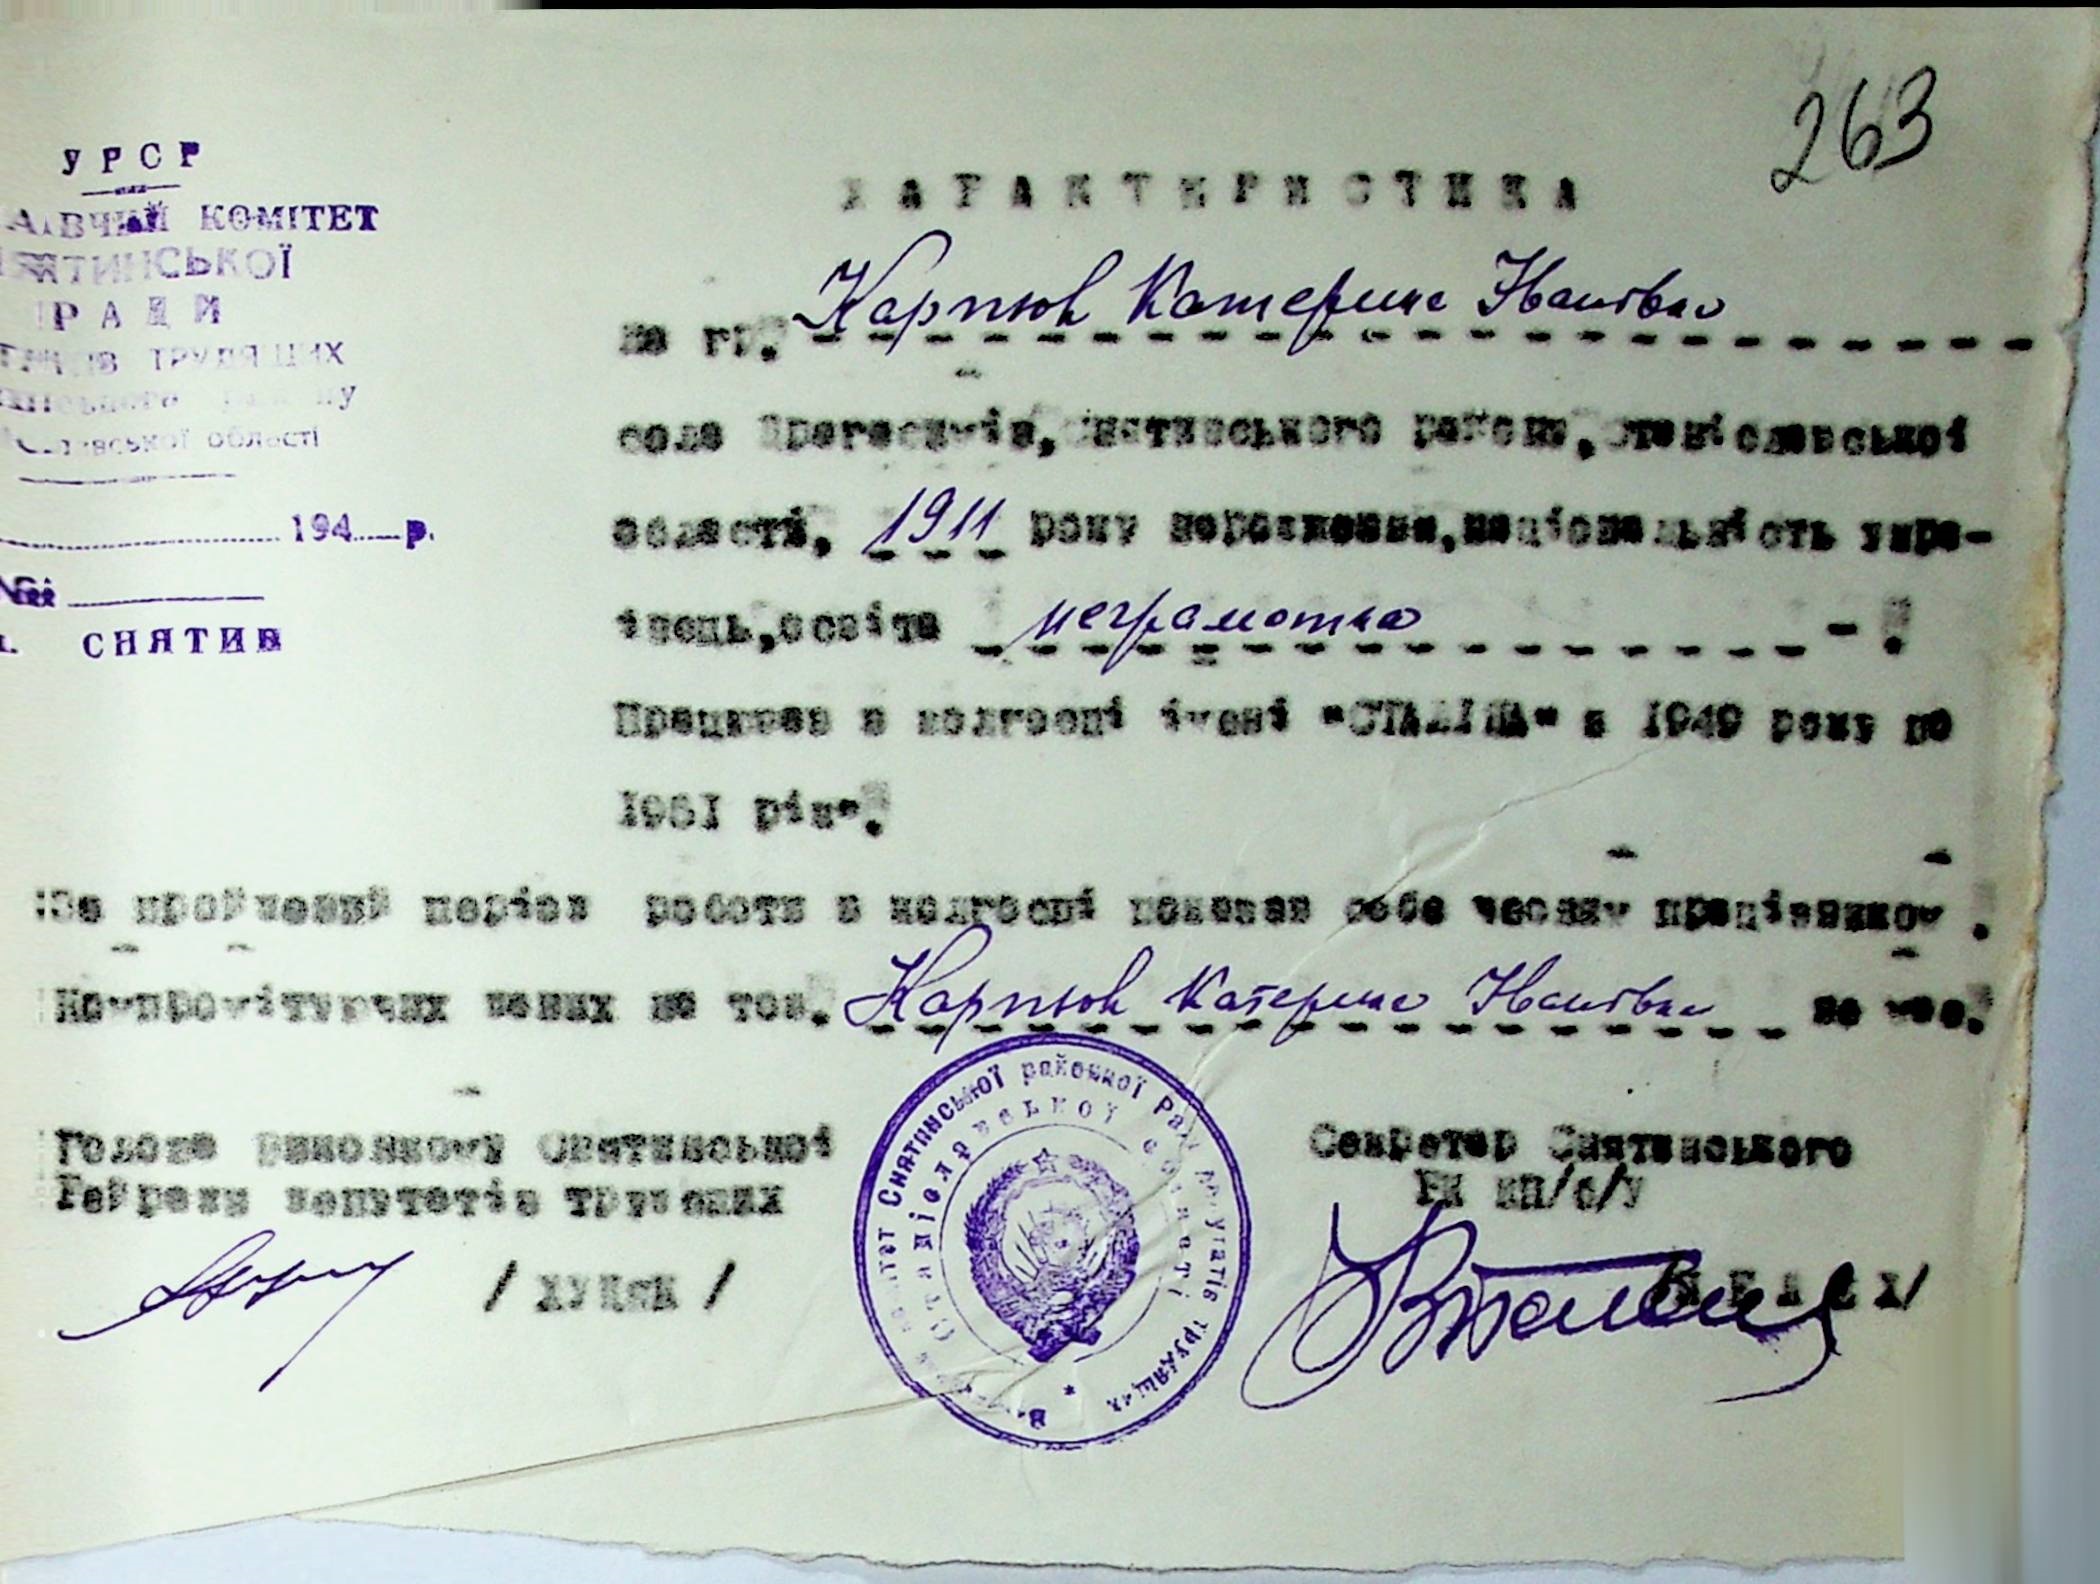 263
УРСР
КОМІТЕТ
РАДИ
ТРУДЯЩИХ
області
194 р.
№
СНЯТИН
ХАРАКТЕРИСТИКА
на гр. Карпюк Катерина Іванівна
село Снятинського району, Станіславської
області, 1911 року народження, національність укра-
їнець, освіта неграмотна
Працював в колгоспі імені "СТАЛІНА" з 1949 року по
1951 рік.
За пройдений період роботи в колгоспі показав себе чесним працівником.
Компромітуючих даних на тов. Карпюк Катерина Іванівна не має.
Голова виконкому Снятинської
Райради депутатів трудящих
Секретар Снятинського
РК КП/б/У
Снятинської районної Ради депутатів трудящих
Станіславської області